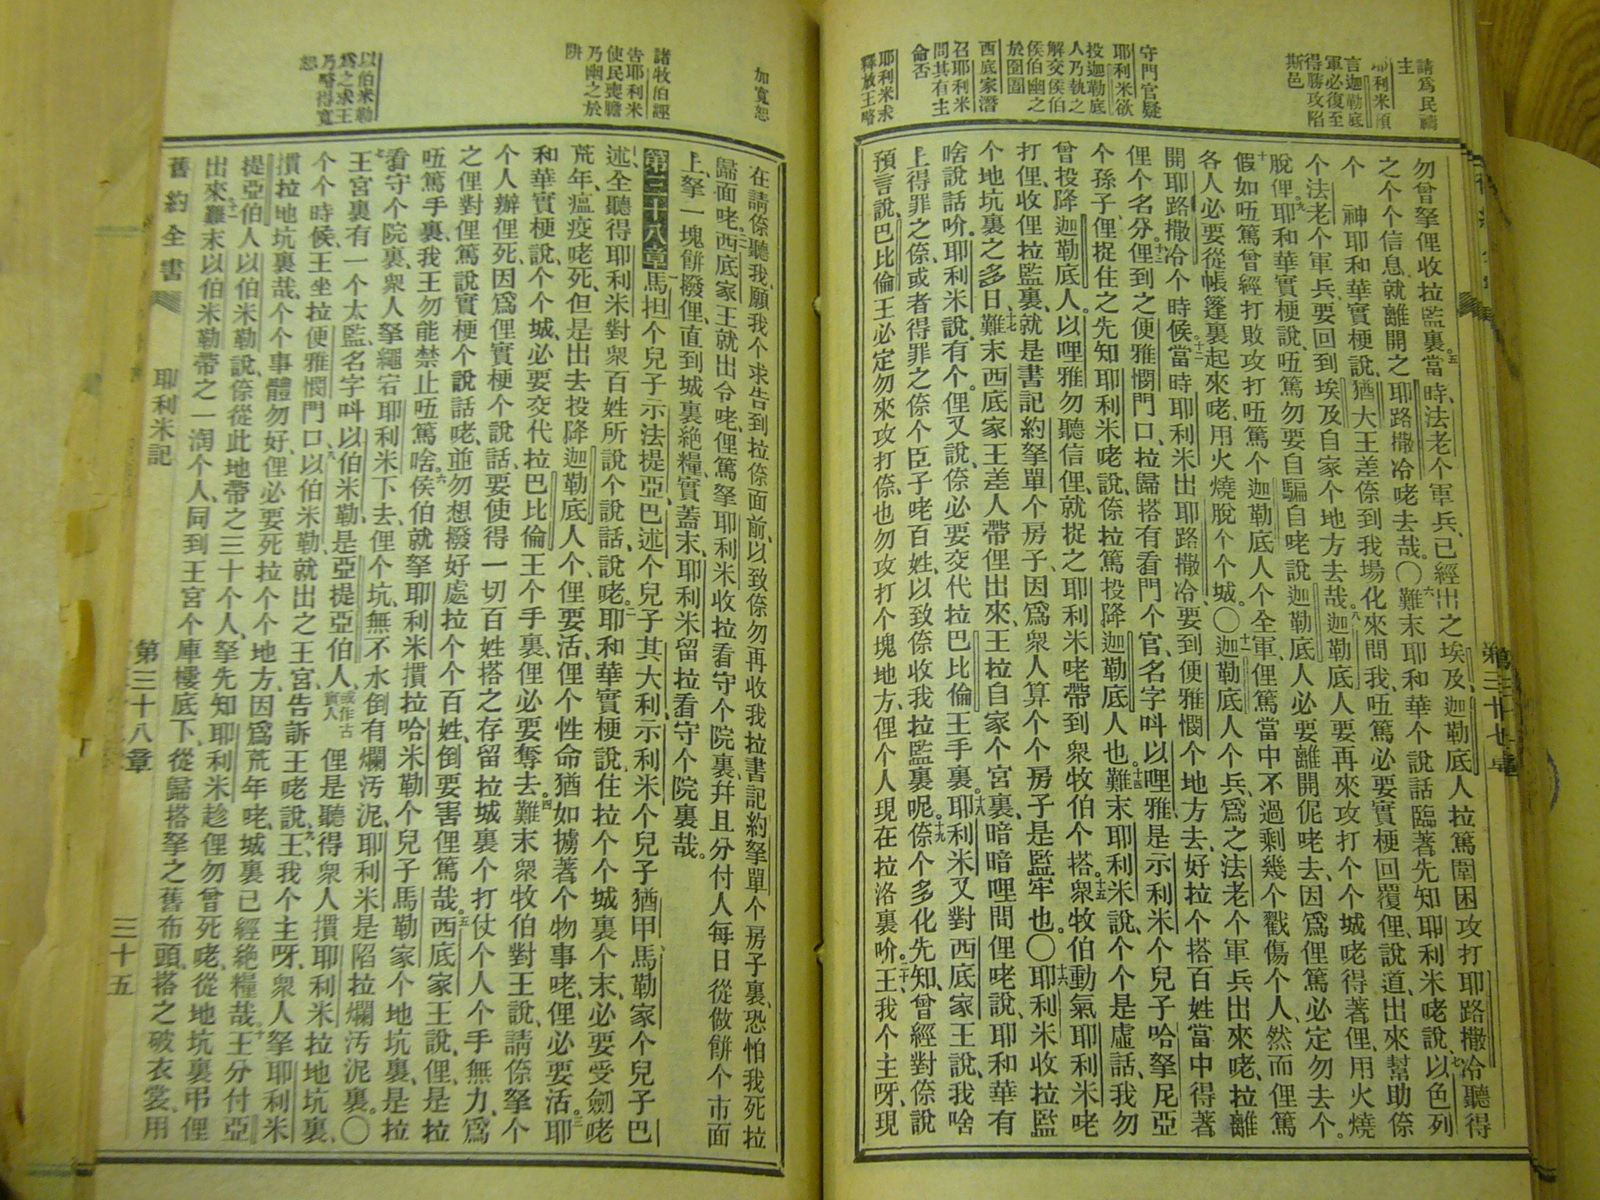 請爲民禱
主
耶利米預
言迦勒底
軍必復至
得勝攻陷
斯邑
守門官疑
耶利米欲
投迦勒底
人乃執之
解交侯伯
侯伯幽之
於囹圄
西底家潛
召耶利米
問其有主
命否
耶利米求
釋放王略
勿曾拏俚收拉監裏當時法老个軍兵已經出之埃及迦勒底人拉篤圍困攻打耶路撒冷聽得
之个个信息就離開之耶路撒冷咾去哉〇難末耶和華个說話臨著先知耶利米咾說以色列
个 神耶和華實梗說猶大王差倷到我場化來問我伍篤必要實梗回覆俚說道出來幫助倷
个法老个軍兵要回到埃及自家个地方去哉迦勒底人要再來攻打个个城咾得著俚用火燒
脫俚耶和華實梗說伍篤勿要自騙自咾說迦勒底人必要離開伲咾去因爲俚篤必定勿去个
假如伍篤曾經打敗攻打伍篤个迦勒底人个全軍俚篤當中不過剩幾个戳傷个人然而俚篤
各人必要從帳篷裏起來咾用火燒脫个个城〇迦勒底人个兵爲之法老个軍兵出來咾拉離
開耶路撒冷个時候當時耶利米出耶路撒冷要到便雅憫个地方去好拉个搭百姓當中得著
俚个名分俚到之便雅憫門口拉歸搭有看門个官名字呌以哩雅是示利米个兒子哈拏尼亞
个孫子俚捉住之先知耶利米咾說倷拉篤投降迦勒底人也難末耶利米說个个是虛話我勿
曾投降迦勒底人以哩雅勿聽信俚就捉之耶利米咾帶到衆牧伯个搭衆牧伯動氣耶利米咾
打俚收俚拉監裏就是書記約拏單个房子因爲衆人算个个房子是監牢也〇耶利米收拉監
个地坑裏之多日難末西底家王差人帶俚出來王拉自家个宮裏暗暗哩問俚咾說耶和華有
啥說話吤耶利米說有个俚又說倷必要交代拉巴比倫王手裏耶利米又對西底家王說我啥
上得罪之倷或者得罪之倷个臣子咾百姓以致倷收我拉監裏呢倷个多化先知曾經對倷說
預言說巴比倫王必定勿來攻打倷也勿攻打个塊地方俚个人現在拉洛裏吤王我个主呀現
加寬恕
諸牧伯誣
告耶利米
使民喪膽
乃幽之於
阱
以伯米勒
爲之求王
乃略得寬
恕
在請倷聽我願我个求告到拉倷面前以致倷勿再收我拉書記約拏單个房子裏恐怕我死拉
歸面咾西底家王就出令咾俚篤拏耶利米收拉看守个院裏幷且分付人每日從做餠个市面
上拏一塊餠撥俚直到城裏絶糧實蓋末耶利米留拉看守个院裏哉
第三十八章 馬担个兒子示法提亞巴述个兒子其大利示利米个兒子猶甲馬勒家个兒子巴
述全聽得耶利米對衆百姓所說个說話說咾耶和華實梗說住拉个个城裏个末必要受劍咾
荒年瘟疫咾死但是出去投降迦勒底人个俚要活俚个性命猶如擄著个物事咾俚必要活耶
和華實梗說个个城必要交代拉巴比倫王个手裏俚必要奪去難末衆牧伯對王說請倷拏个
个人辦俚死因爲俚實梗个說話要使得一切百姓搭之存留拉城裏个打仗个人个手無力爲
之俚對俚篤說實梗个說話咾並勿想撥好處拉个个百姓倒要害俚篤哉西底家王說俚是拉
伍篤手裏我王勿能禁止伍篤啥侯伯就拏耶利米摜拉哈米勒个兒子馬勒家个地坑裏是拉
看守个院裏衆人拏繩宕耶利米下去俚个坑無不水倒有爛汚泥耶利米是陷拉爛汚泥裏〇
王宮裏有一个太監名字呌以伯米勒是亞提亞伯人或作古實人俚是聽得衆人摜耶利米拉地坑裏
个个時候王坐拉便雅憫門口以伯米勒就出之王宮告訴王咾說王我个主呀衆人拏耶利米
摜拉地坑裏哉个个事體勿好俚必要死拉个个地方因爲荒年咾城裏已經絶糧哉王分付亞
提亞伯人以伯米勒說倷從此地帶之三十个人拏先知耶利米趁俚勿曾死咾從地坑裏弔俚
出來難末以伯米勒帶之一淘个人同到王宮个庫樓底下從歸搭拏之舊布頭搭之破衣裳用
舊約全書 耶利米記 第三十八章 三十五